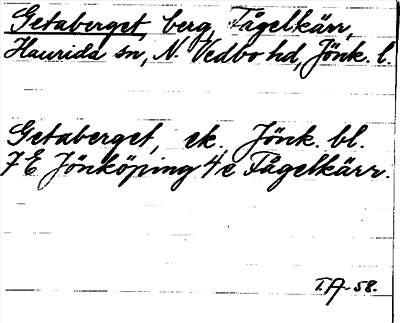 Getaberget, berg, Fågelkärr,
Haurida sn, N. Vedbo hd, Jönk. l.
Getaberget, ek. Jönk. bl.
7 E Jönköping 4 e Fågelkärr.
T.A-58.